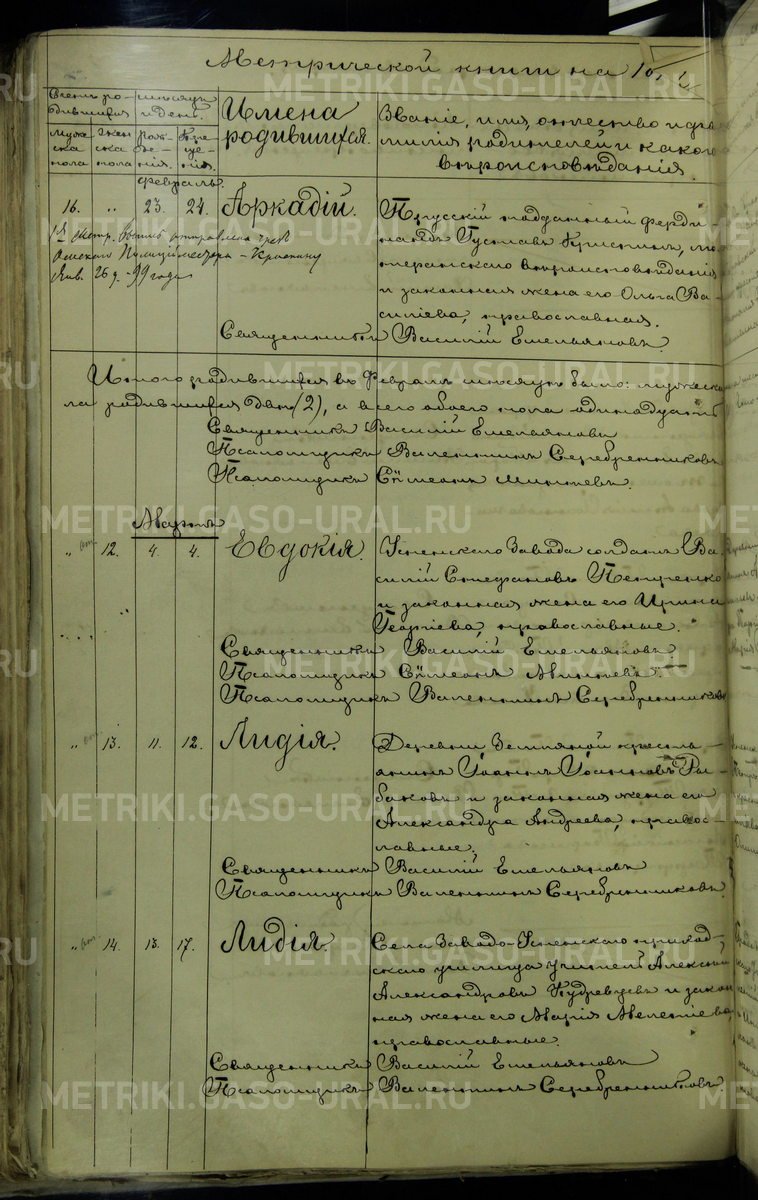 Метрической книги на 18
Счетъ ро-
дившихся
мѣсяцъ
и день.
Имена
родившихся.
Званіе, имя, отчество и фа-
милія родителей и какого
вѣроисповѣданія.
муже-
ска
пола
жен
ска
пола
рож-
де-
нія.
кре-
ще-
нія.
Февраль.
16. „ 23. 24. Аркадій.
Прусскій подданный Ферди-
нандъ Густавъ лю-
теранскаго вѣроисповѣданія
и законная жена его Ольга Ва-
силіева, православная.
Священникъ Василій Емельяновъ.
отправлена чрезъ
Омскаго Полиціймейстера
Янв. 26 д. -99 года
Итого родившихся въ Февралѣ мѣсяцѣ было: мужеска
ла родившихся два (2), а всего обоего пола одинадцать
Священникъ Василій Емельяновъ
Псаломщикъ Валентинъ Серебренниковъ
Псаломщикъ Сѵмеонъ
Мартъ
„ 12. 4. 4. Евдокія.
Успенскаго Завода солдатъ Ва-
силій Стефановъ Петренко
и законная жена его Ирина
Георгіева, православные.
Священникъ Василій Емельяновъ
Псаломщикъ Сѵмеонъ
Псаломщикъ Валентинъ Серебренниковъ
„ 13. 11. 12. Лидія.
Деревни Земляной кресть-
янинъ Іоаннъ Іоанновъ Ры-
баковъ и законная жена его
Александра Андреева, правос-
лавные.
Священникъ Василій Емельяновъ
Псаломщикъ Валентинъ Серебренниковъ.
„ 14. 13. 17. Лидія.
Села Заводо-Успенскаго приход-
скаго училища учитель Алексѣй
Александровъ Кудрявцевъ и закон
ная жена его Марія Мелетіева,
православные.
Священникъ Василій Емельяновъ
Псаломщикъ Валентинъ Серебренниковъ
METRIKI.GASO-URAL.RU